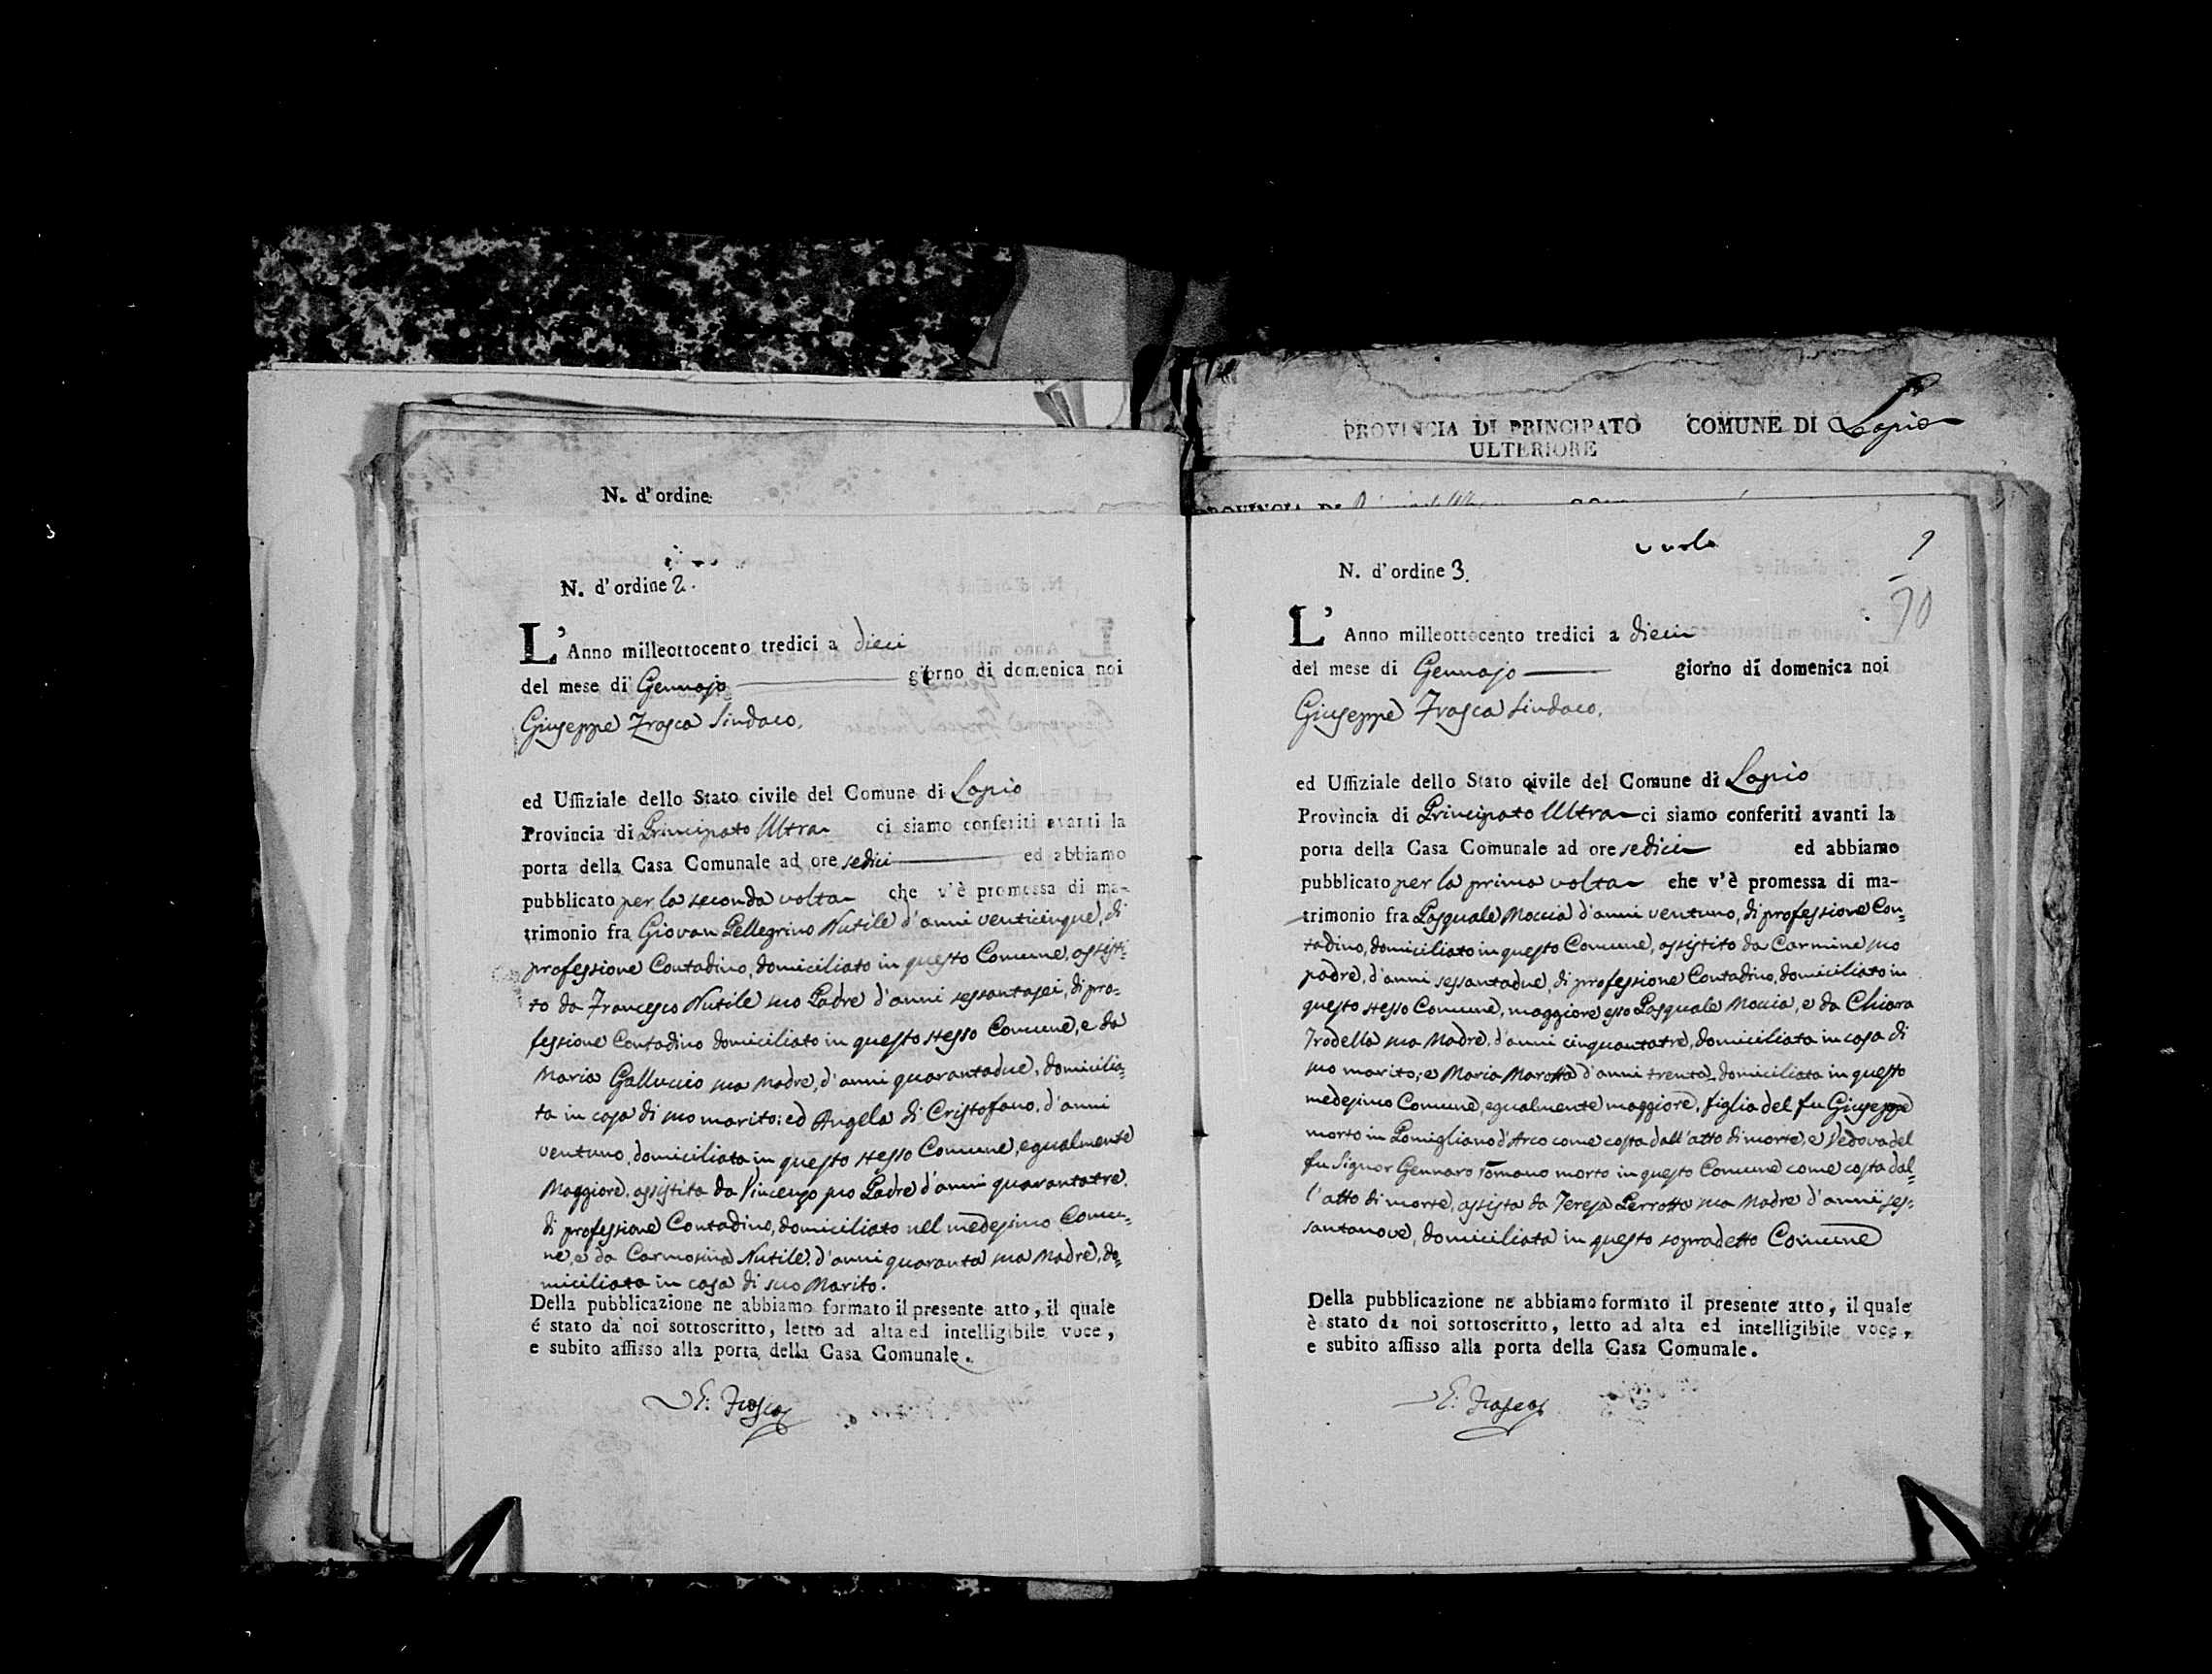 N. d'ordine
N. d'ordine 2.
L'Anno milleottocento tredici a dieci
del mese di Gennajo giorno di domenica noi
Giuseppe Frasca Sindaco.
ed Uffiziale dello Stato civile del Comune di Lapio
Provincia di Principato Ultra ci siamo conferiti avanti la
porta della Casa Comunale ad ore sedici ed abbiamo
pubblicato per la seconda volta che v'è promessa di ma-
trimonio fra Giovan Pellegrino Nutile d'anni venticinque, di
professione Contadino, domiciliato in questo Comune, assisti=
to da Francesco Nutile suo Padre d'anni sessantasei, di pro=
fessione Contadino domiciliato in questo stesso Comune, e da
Maria Galluccio sua Madre, d'anni quarantadue, domicilia=
ta in casa di suo marito: ed Angela di Cristofano, d'anni
ventuno, domiciliata in questo stesso Comune, egualmente
Maggiore, assistita da Vincenzo suo Padre d'anni quarantatre,
di professione Contadino, domiciliato nel medesimo Comu=
ne, e da Carmosina Nutile, d'anni quaranta sua Madre, do=
miciliata in casa di suo Marito.
Della pubblicazione ne abbiamo formato il presente atto, il quale
é stato da noi sottoscritto, letto ad alta ed intelligibile voce,
e subito affisso alla porta della Casa Comunale.
G: Frasca
PROVINCIA DI PRINCIPATO COMUNE DI Lapio
ULTERIORE
PROVINCIA DI
N. d'ordine 3.
L'Anno milleottocento tredici a dieci
del mese di Gennajo giorno di domenica noi
Giuseppe Frasca Sindaco.
ed Uffiziale dello Stato civile del Comune di Lapio
Provincia di Principato Ultra ci siamo conferiti avanti la
porta della Casa Comunale ad ore sedici ed abbiamo
pubblicato per la prima volta che v'è promessa di ma-
trimonio fra Pasquale Moccia d'anni ventuno, di professione Con=
tadino, domiciliato in questo Comune, assistito da Carmine suo
padre, d'anni sessantadue, di professione Contadino, domiciliato in
questo stesso Comune, maggiore esso Pasquale Moccia, e da Chiara
Trodella sua Madre, d'anni cinquantatre, domiciliata in casa di
suo marito; e Maria Marotta d'anni trenta domiciliata in questo
medesimo Comune, egualmente maggiore, figlia del fu Giuseppe
morto in Pomigliano d'Arco come costa dall'atto di morte, e Vedova del
fu Signor Gennaro Romano morto in questo Comune come costa dal=
l'atto di morte, assista da Teresa Perrotta sua Madre d'anni ses=
santanove, domiciliata in questo sopradetto Comune
Della pubblicazione ne abbiamo formato il presente atto, il quale
è stato da noi sottoscritto, letto ad alta ed intelligibile voce,
e subito affisso alla porta della Casa Comunale.
G: Frasca